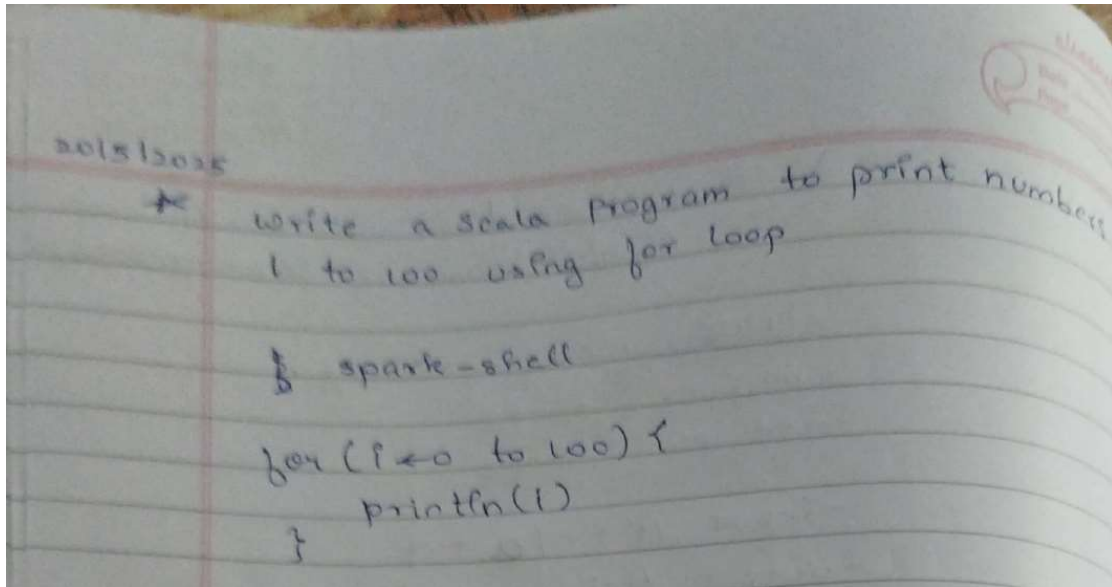 20/5/2025
* write a scala program to print numbers
1 to 100 using for loop
$ spark-shell
for (i <- 0 to 100) {
println(i)
}